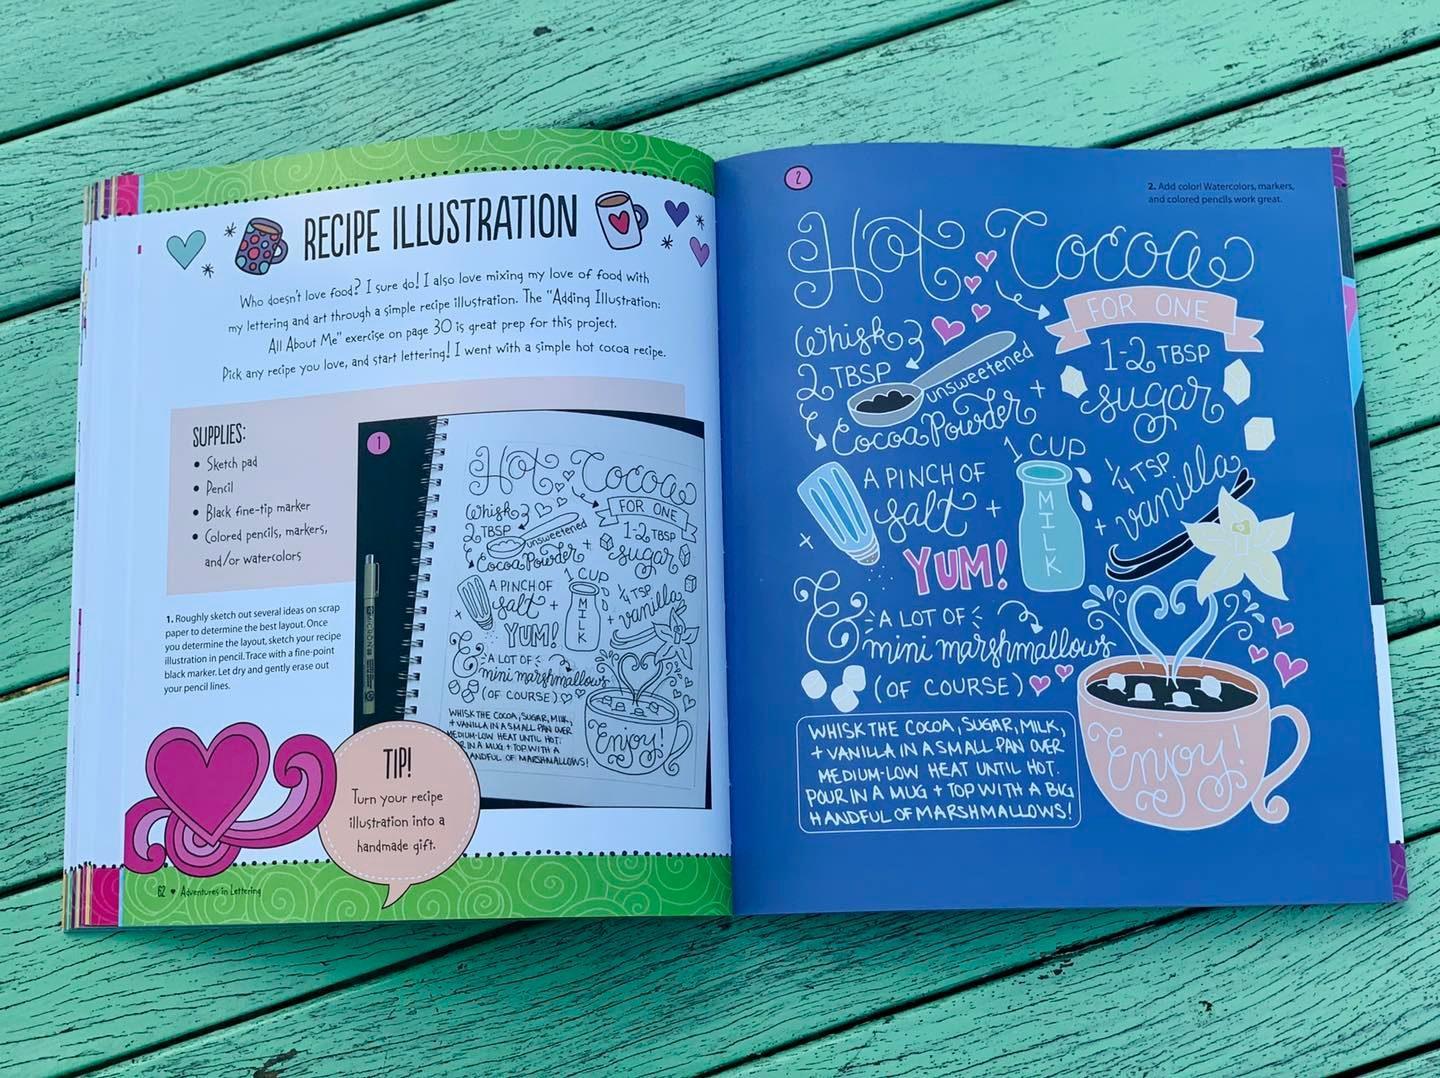 RECIPE ILLUSTRATION
Who doesn't love food? I sure do! I also love mixing my love of food with
my lettering and art through a simple recipe illustration. The "Adding Illustration:
All About Me" exercise on page 30 is great prep for this project.
Pick any recipe you love, and start lettering! I went with a simple hot cocoa recipe.
SUPPLIES:
• Sketch pad
• Pencil
• Black fine-tip marker
• Colored pencils, markers,
and/or watercolors
1. Roughly sketch out several ideas on scrap
paper to determine the best layout. Once
you determine the layout, sketch your recipe
illustration in pencil. Trace with a fine-point
black marker. Let dry and gently erase out
your pencil lines.
1
Hot Cocoa
FOR ONE
Whisk
2 TBSP
unsweetened
Cocoa Powder +
1-2 TBSP
sugar
A PINCH OF
salt +
YUM!
1 CUP
MILK
+
1/4 TSP
vanilla
& A LOT OF
mini marshmallows
(OF COURSE)
WHISK THE COCOA, SUGAR, MILK,
+ VANILLA IN A SMALL PAN OVER
MEDIUM-LOW HEAT UNTIL HOT.
IN A MUG + TOP WITH A
HANDFUL OF MARSHMALLOWS!
Enjoy!
MICRON
TIP!
Turn your recipe
illustration into a
handmade gift.
62 ♥ Adventures in Lettering
2
2. Add color! Watercolors, markers,
and colored pencils work great.
Hot Cocoa
FOR ONE
Whisk
2 TBSP
unsweetened
Cocoa Powder +
1-2 TBSP
sugar
A PINCH OF
salt +
YUM!
1 CUP
MILK
+
1/4 TSP
vanilla
& A LOT OF
mini marshmallows
(OF COURSE)
WHISK THE COCOA, SUGAR, MILK,
+ VANILLA IN A SMALL PAN OVER
MEDIUM-LOW HEAT UNTIL HOT.
POUR IN A MUG + TOP WITH A BIG
HANDFUL OF MARSHMALLOWS!
Enjoy!